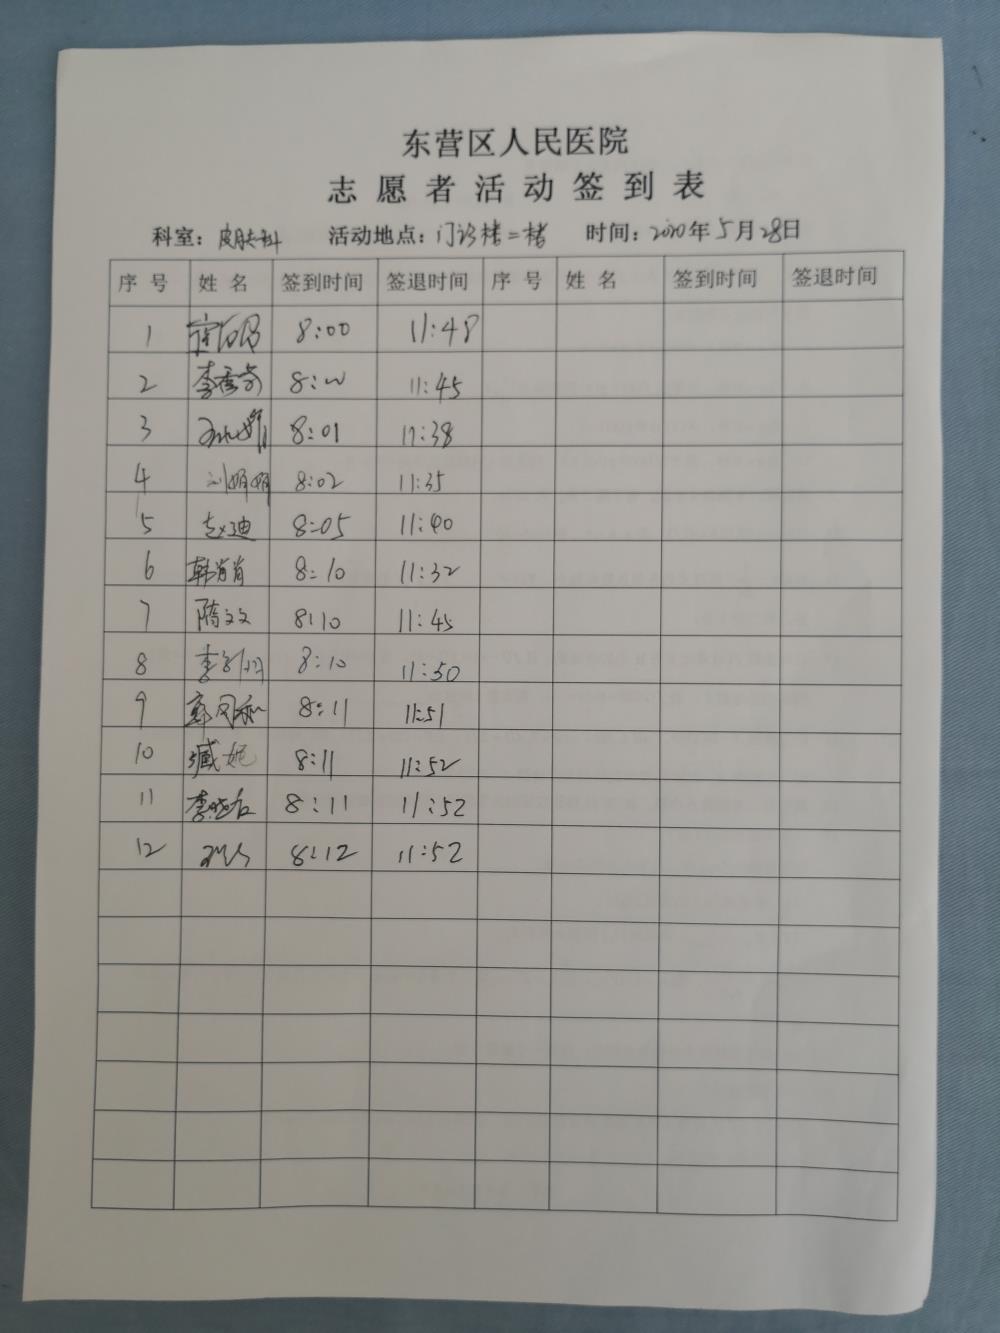 东营区人民医院
志愿者活动签到表
科室：皮肤科 活动地点：门诊楼二楼 时间：2020年5月28日
序号 姓名 签到时间 签退时间 序号 姓名 签到时间 签退时间
1 8:00 11:48
2 李秀芳 8:00 11:45
3 8:01 11:38
4 刘娟娟 8:02 11:35
5 赵迪 8:05 11:40
6 韩肖肖 8:10 11:32
7 隋文文 8:10 11:45
8 8:10 11:50
9 8:11 11:51
10 臧妮 8:11 11:52
11 8:11 11:52
12 8:12 11:52